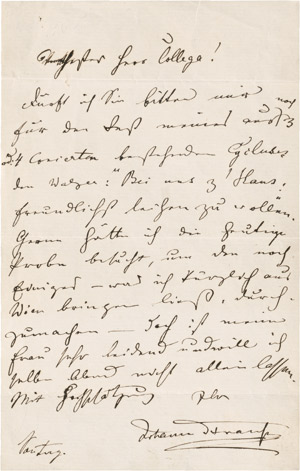 Verehrtester Herr Collega!
Dürft ich Sie bitten mir noch
für den Rest meines aus 3
4 Concerten bestehenden Cyclus
den Walzer: "Bei uns z' Haus"
freundlichst leihen zu wollen.
Gerne hätte ich die heutige
Probe besucht, um den noch
Einiges – was ich kürzlich aus
Wien bringen ließ, durch-
zumachen – doch ist meine
Frau sehr leidend und will ich
selbe Abend nicht allein lassen.
Mit Hochschätzung
Johann Strauss
Sontag.